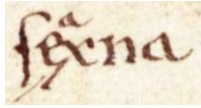 ſexͣena